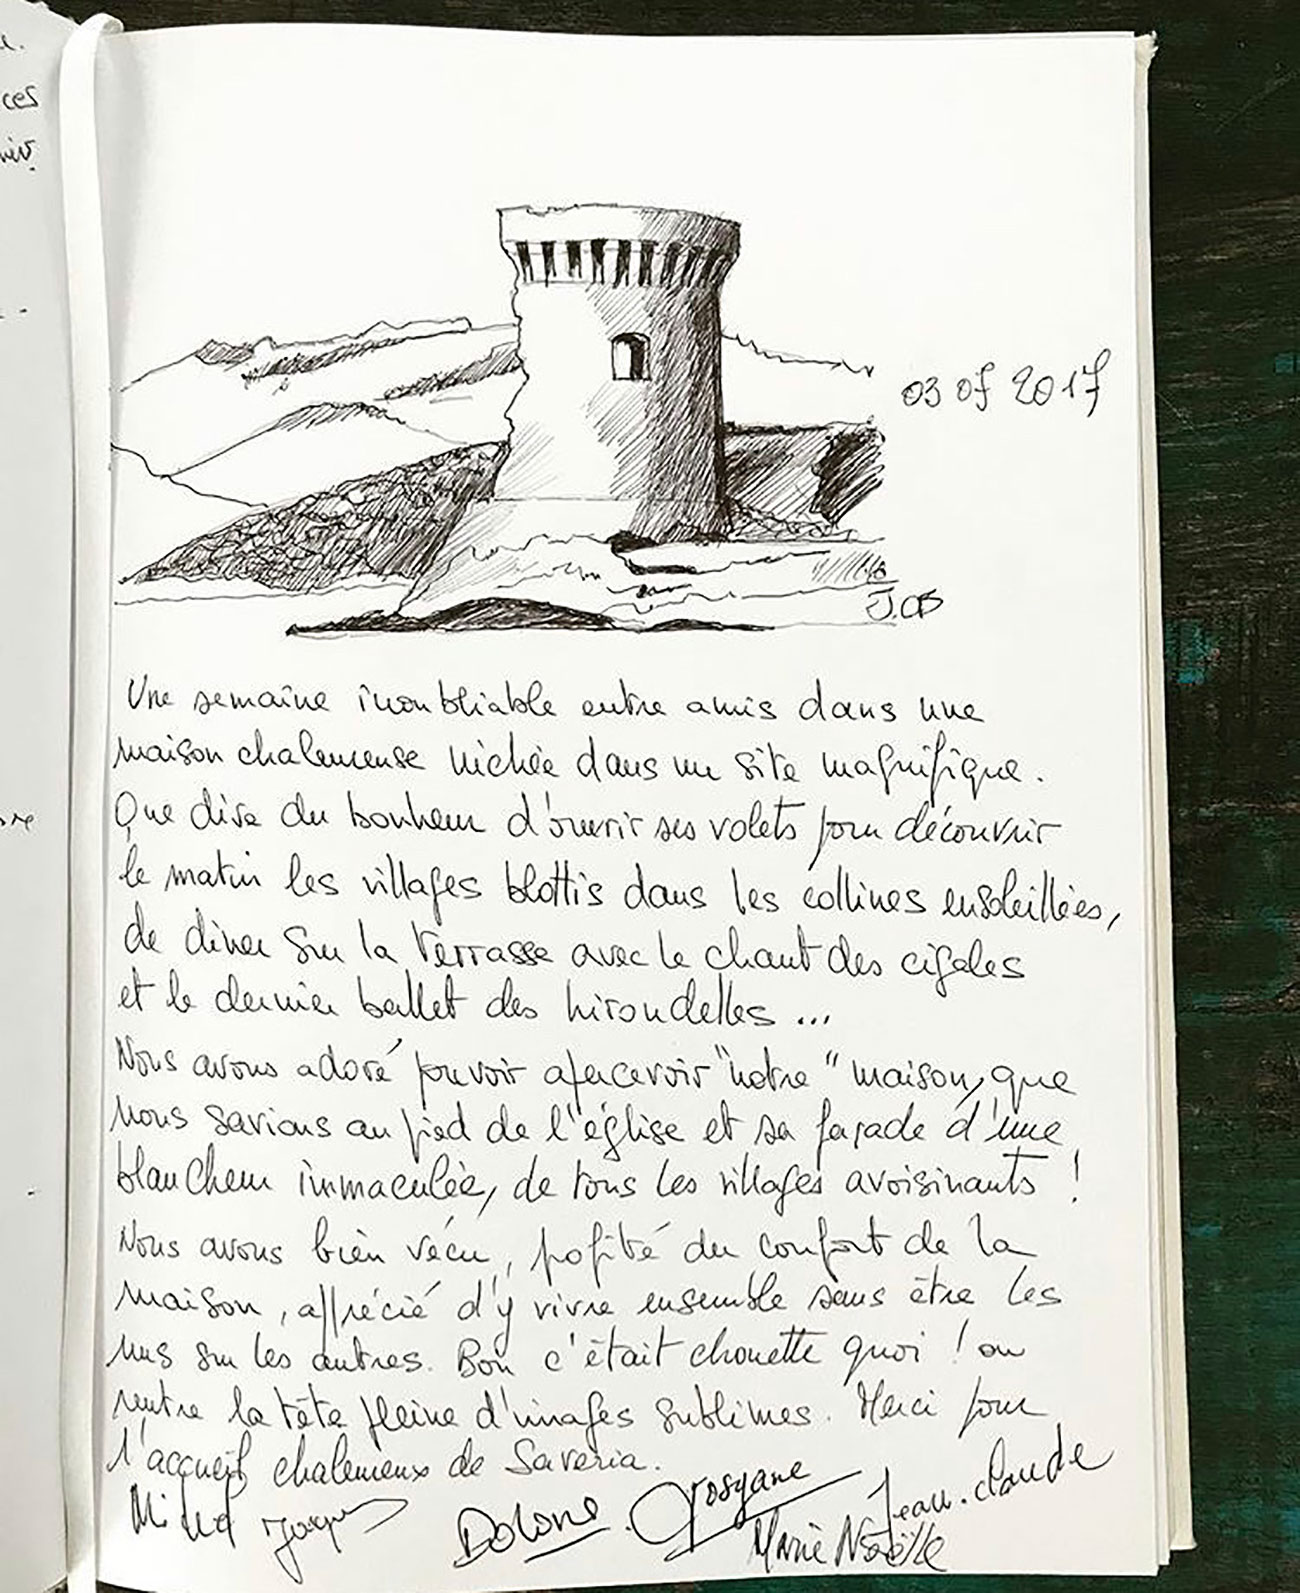 e.
ces
03 07 2017
J.CB
Une semaine inoubliable entre amis dans une
maison chaleureuse nichée dans un site magnifique.
Que dire du bonheur d'ouvrir ses volets pour découvrir
le matin les villages blottis dans les collines ensoleillées,
de diner sur la terrasse avec le chant des cigales
et le dernier ballet des hirondelles ...
Nous avons adoré pouvoir apercevoir "notre" maison, que
nous savions au pied de l'église et sa façade d'une
blancheur immaculée, de tous les villages avoisinants !
Nous avons bien vécu, profité du confort de la
maison, apprécié d'y vivre ensemble sans être les
uns sur les autres. Bon c'était chouette quoi ! on
rentre la tête pleine d'images sublimes. Merci pour
l'accueil chaleureux de Saveria.
Jean-Claude
Josyane
Marie Noëlle